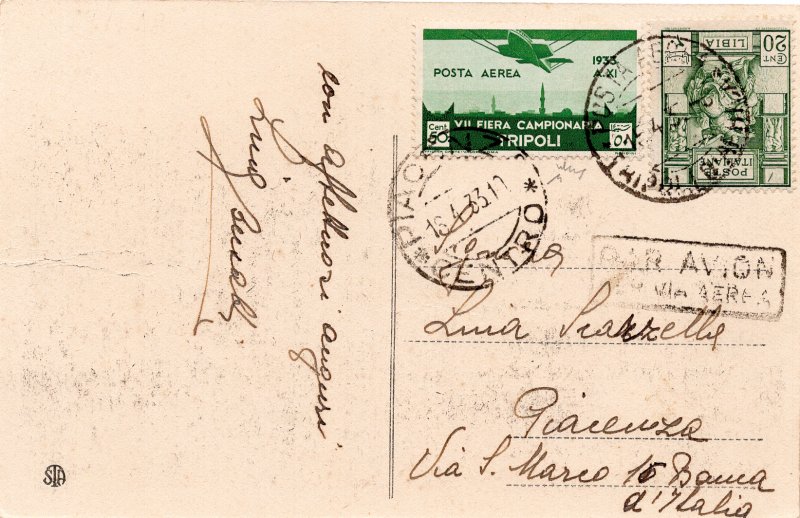 con affettuosi auguri
Luisa
POSTA AEREA
1933
A.XI
Cent
50
VII FIERA CAMPIONARIA
TRIPOLI
CENT 20
LIBIA
POSTE
ITALIANE
POSTA AEREA
TRIPOLI
PIACENZA
16.4.33.11
*CENTRO*
PAR AVION
VIA AEREA
Signora
Luisa Scarzella
Piacenza
Via S. Marco 16 Banca
d'Italia
STA